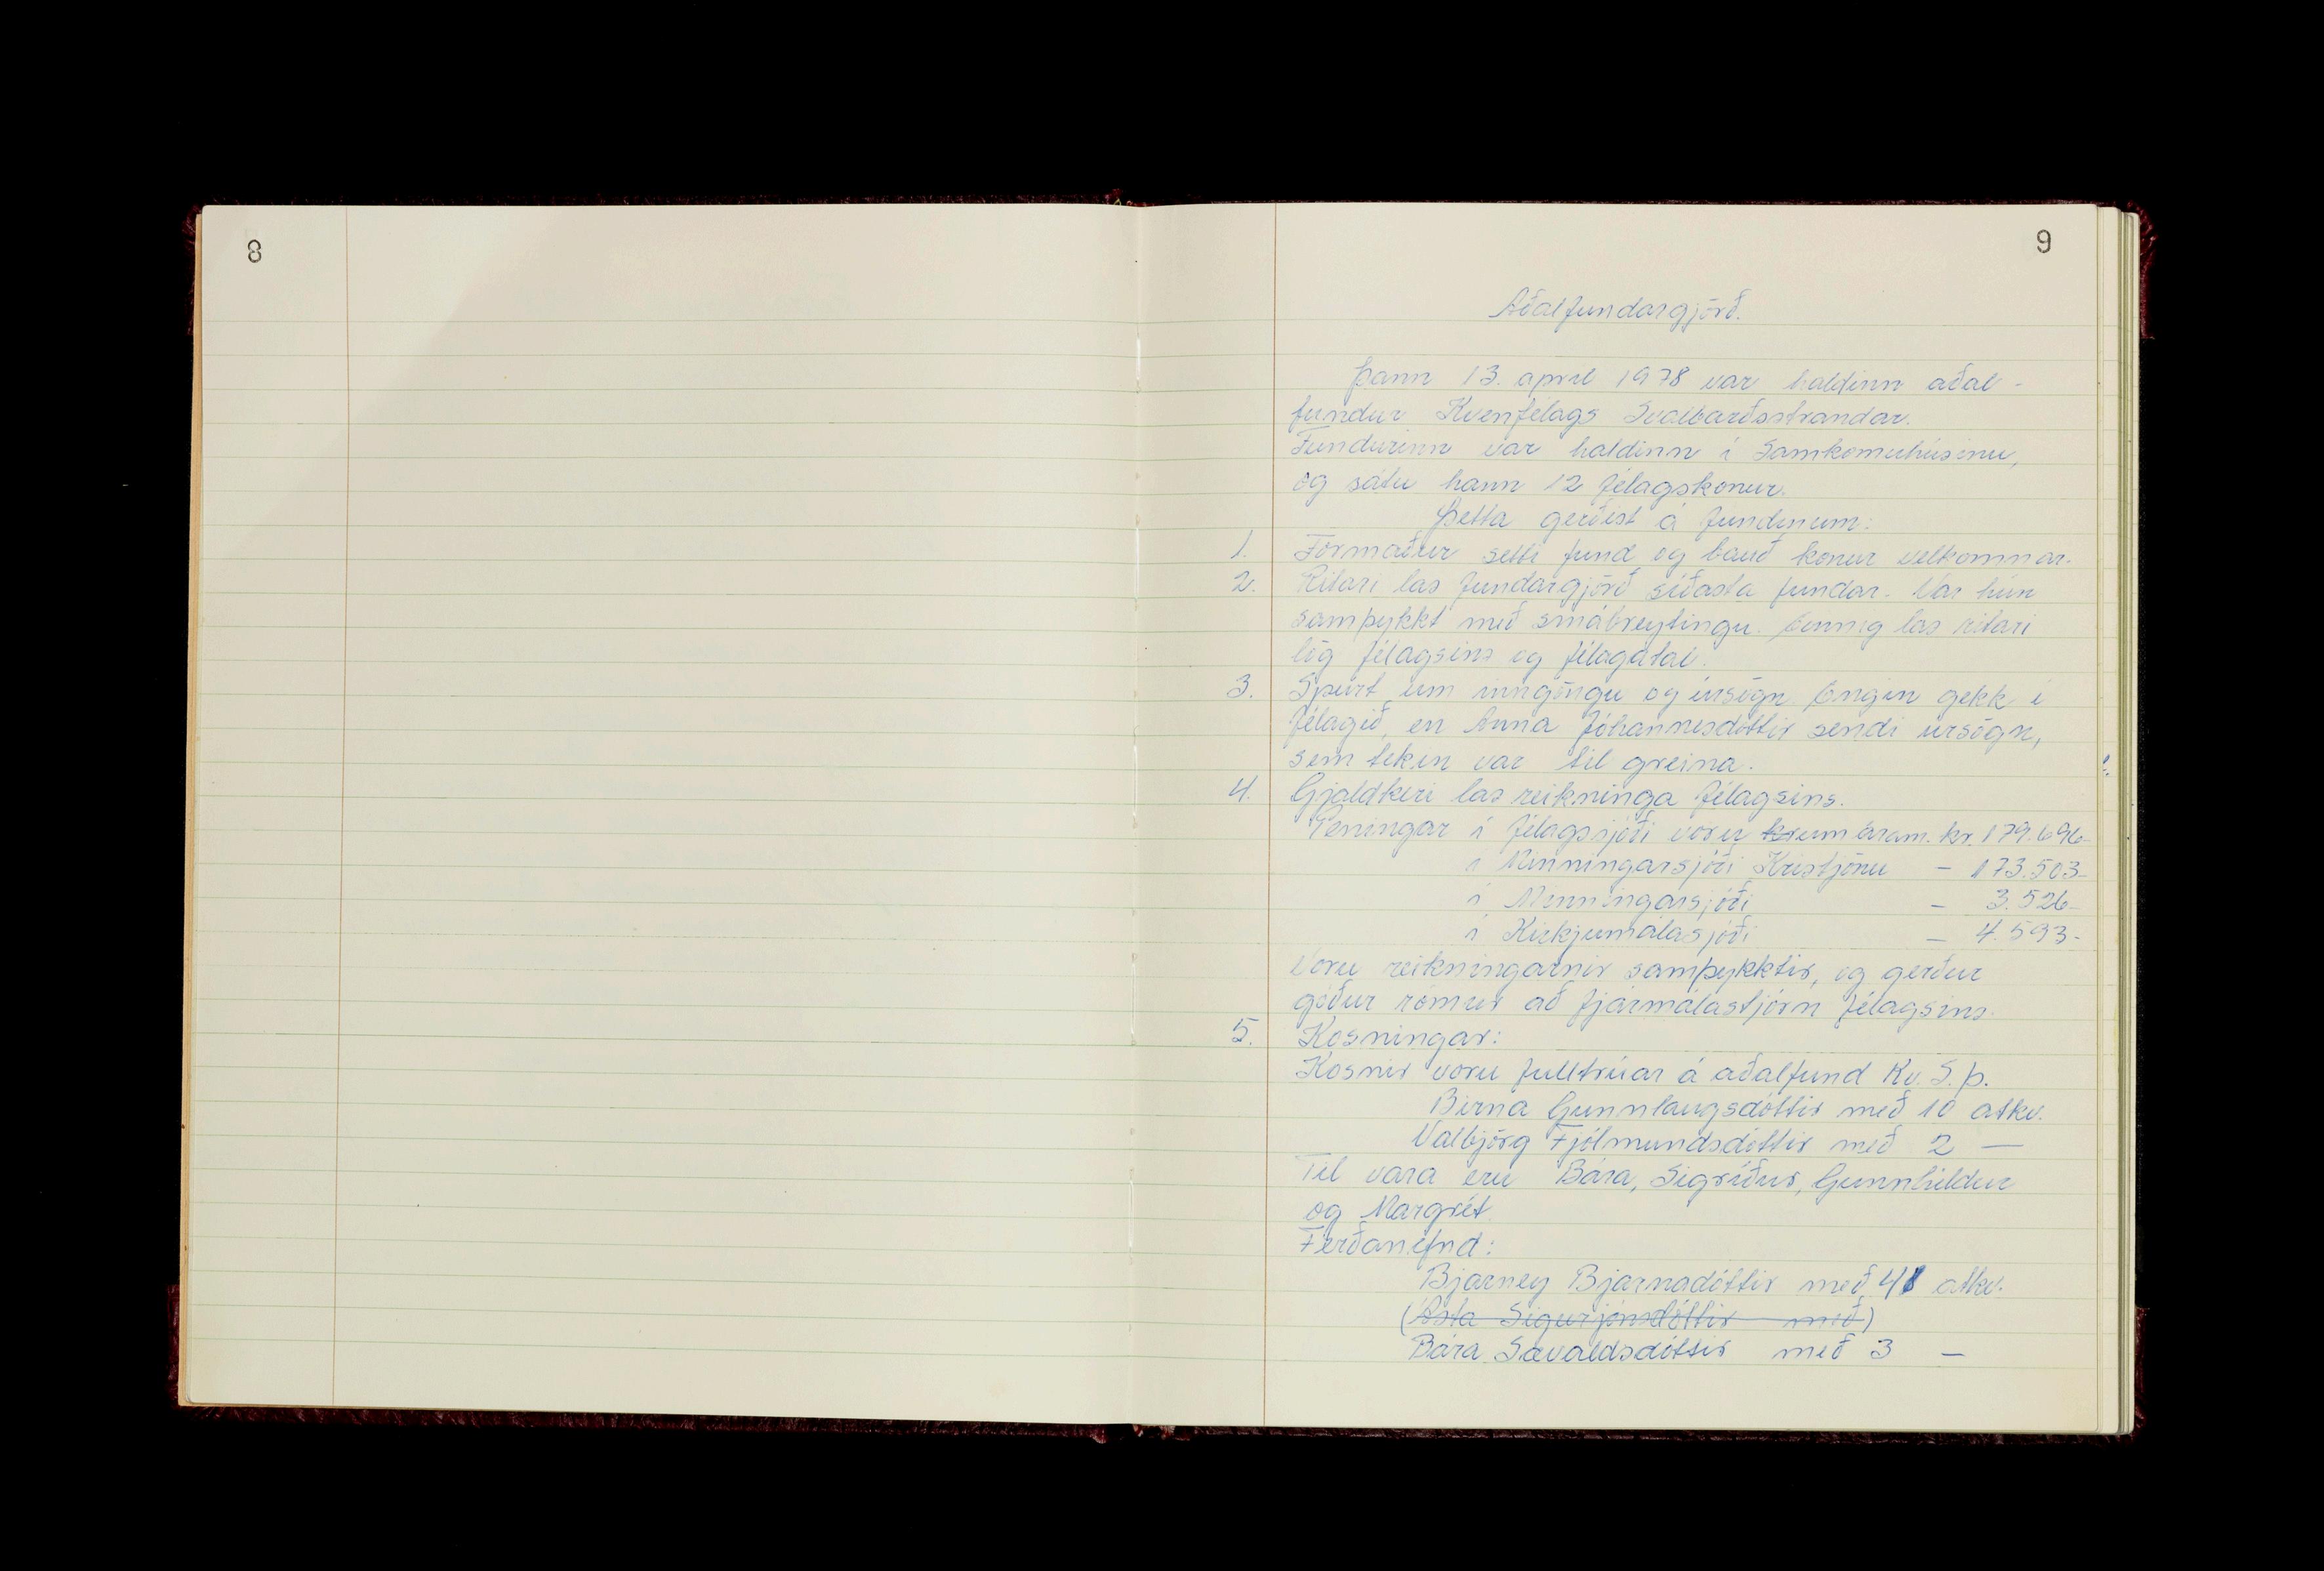 8
9
Aðalfundargjörð.
Þann 13. apríl 1978 var haldinn aðal-
fundur Kvenfélags Svalbarðsstrandar.
Fundurinn var haldinn í Samkomuhúsinu,
og sátu hann 12 félagskonur.
Þetta gerðist á fundinum:
1. Formaður setti fund og bauð konur velkomnar.
2. Ritari las fundargjörð síðasta fundar. Var hún
samþykkt með smábreytingu. Einnig las ritari
lög félagsins og félagatal.
3. Spurt um inngöngu og úrsögn. Engin gekk í
félagið, en Anna Jóhannesdóttir sendi úrsögn,
sem tekin var til greina.
4. Gjaldkeri las reikninga félagsins.
Peningar í félagssjóði voru kr um áram. kr. 179.696-
í Minningarsjóði Kristjönu - 173.503-
í Minningarsjóði - 3.526-
í Kirkjumálasjóði - 4.593-
Voru reikningarnir samþykktir, og gerður
góður rómur að fjármálastjórn félagsins.
5. Kosningar:
Kosnir voru fulltrúar á aðalfund Kv. S.þ.
Birna Gunnlaugsdóttir með 10 atkv.
Valbjörg Fjólmundsdóttir með 2 —
Til vara eru Bára, Sigríður, Gunnhildur
og Margrét.
Ferðanefnd:
Bjarney Bjarnadóttir með 4 atkv.
(Ásta Sigurjónsdóttir með)
Bára Sævaldsdóttir með 3 —